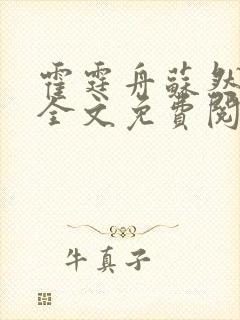 霍霆舟蘇然
全文免費閱
牛真子